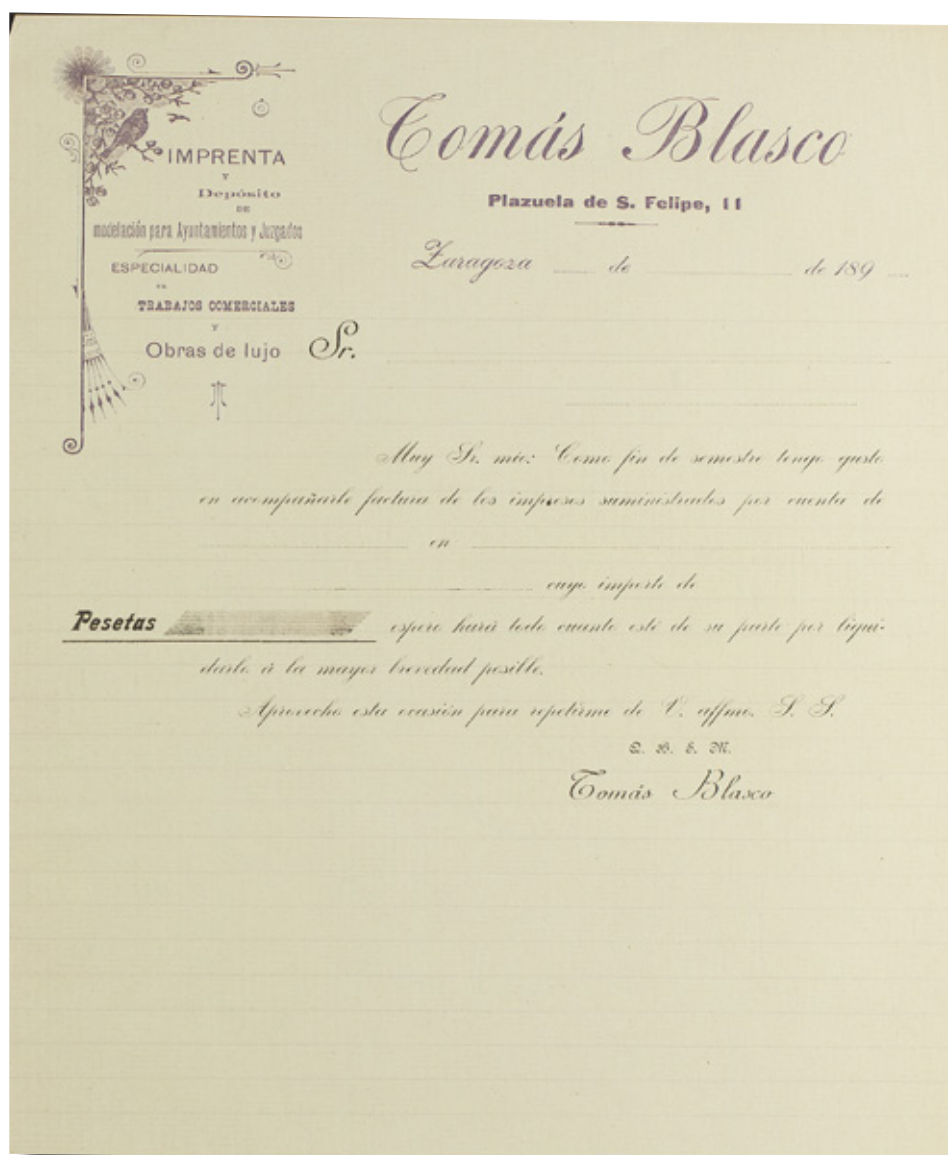 IMPRENTA
Y
Depósito
DE
modelación para Ayuntamientos y Juzgados
ESPECIALIDAD
EN
TRABAJOS COMERCIALES
Y
Obras de lujo
Tomás Blasco
Plazuela de S. Felipe, 11
Zaragoza de de 189
Sr.
Muy Sr. mío: Como fin de semestre tengo gusto
en acompañarle factura de los impresos suministrados por cuenta de
en
cuyo importe de
Pesetas espero hará todo cuanto esté de su parte por liqui-
darle á la mayor brevedad posible.
Aprovecho esta ocasión para repetirme de V. affmo. S. S.
Q. B. S. M.
Tomás Blasco